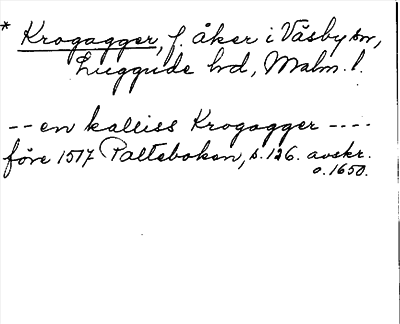 * Krogagger, f. åker i Väsby sn,
Luggude hd, Malm. l.
-- en kalliss Krogagger ----
före 1517 Palteboken, s. 126. avskr.
o. 1650.